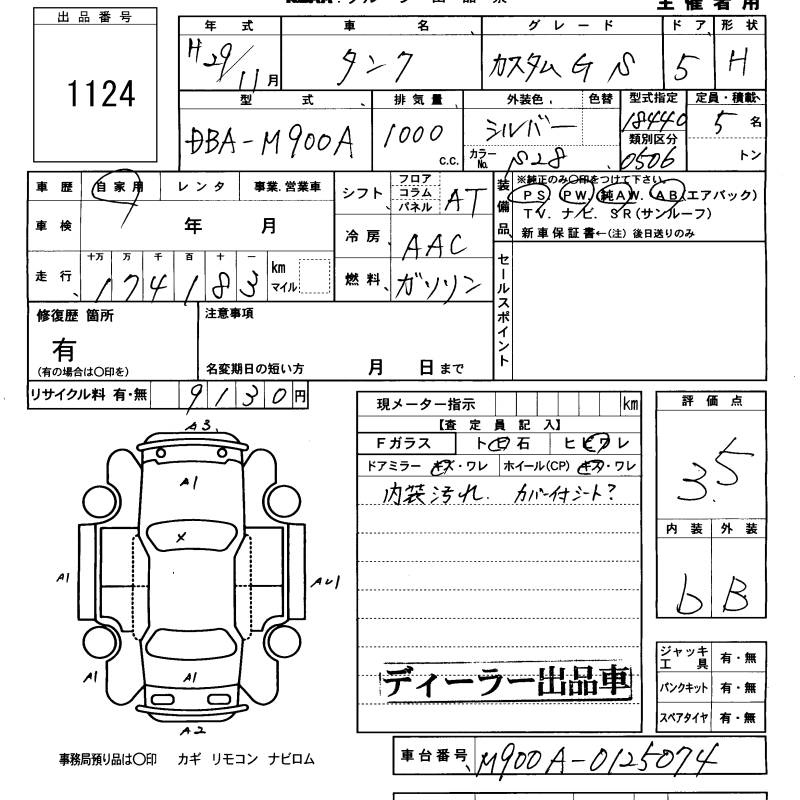 出品番号
1124
主催者用
年式 車名 グレード ドア 形状
H29/11月 タンク カスタムG S 5 H
型式 排気量 外装色 色替 型式指定 定員・積載
DBA-M900A 1000 c.c. シルバー 18440 5名
類別区分
カラーNo. S28 0506 トン
車歴 自家用 レンタ 事業.営業車
シフト フロア コラム パネル AT
装備品 ※純正のみ〇印をつけて下さい。
PS PW 純AW. AB(エアバッグ)
TV. ナビ. SR(サンルーフ)
新車保証書←(注) 後日送りのみ
車検 年 月
冷房 AAC
走行 十万 万 千 百 十 一
174183 km マイル
燃料 ガソリン
セールスポイント
修復歴 箇所
有
(有の場合は〇印を)
注意事項
名変期日の短い方 月 日まで
リサイクル料 有・無 9130円
現メーター指示 km
【査定員記入】
Fガラス トビ石 ヒビワレ
ドアミラー キズ・ワレ ホイール(CP) キズ・ワレ
内装汚れ. カバー付シート?
評価点
3.5
内装 外装
b B
A3
A1
X
A1
AU1
A1
A1
A1
A2
ディーラー出品車
ジャッキ工具 有・無
パンクキット 有・無
スペアタイヤ 有・無
事務局預り品は〇印 カギ リモコン ナビロム
車台番号 M900A-0125074